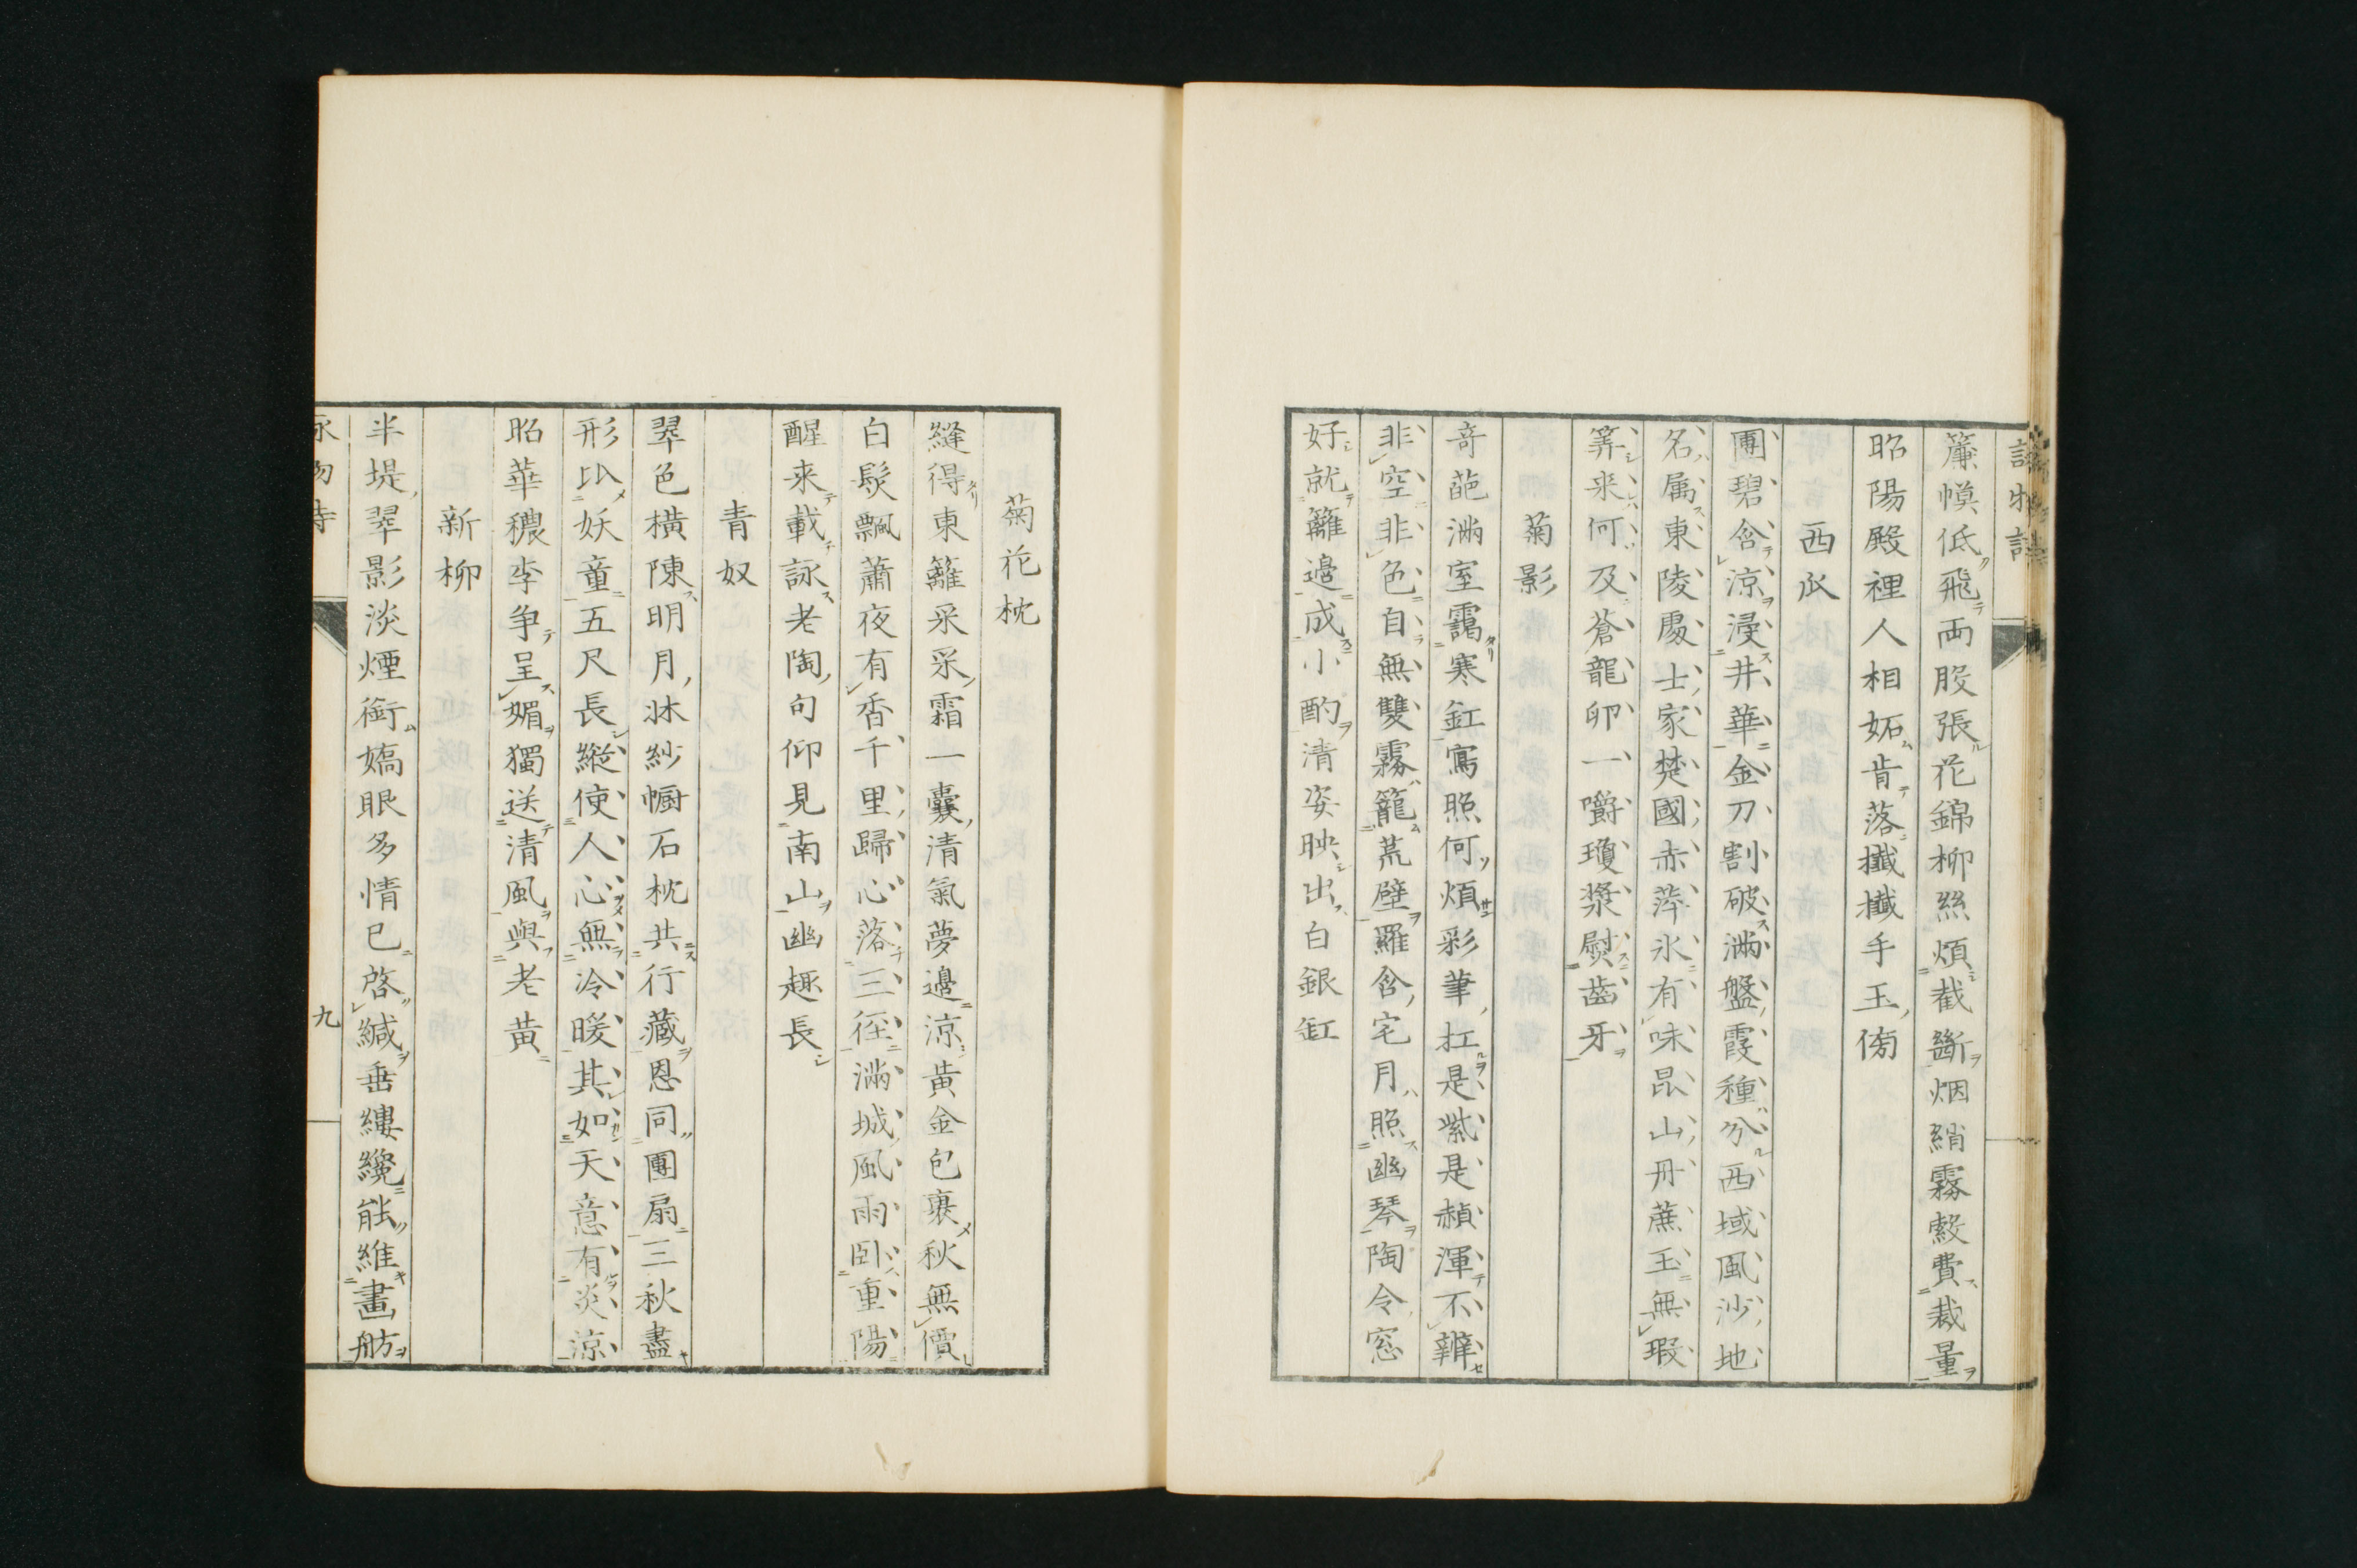 簾幙低飛両股張花錦柳絲煩截斷烟綃霧縠費裁量
昭陽殿裡人相妬肯落攕攕手玉傍
西瓜
團碧含涼浸井華金刀割破満盤霞種分西域風沙地
名属東陵處士家楚國赤萍氷有味昆山丹蔗玉無瑕
筭来何及蒼龍卵一嚼瓊漿慰齒牙
菊影
奇葩満室靄寒釭寫照何煩彩筆扛是紫是赬渾不辨
非空非色自無雙霧籠荒壁羅含宅月照幽琴陶令窓
好就籬邉成小酌清姿映出白銀缸
菊花枕
縫得東籬采采霜一囊清氣夢邉涼黄金包裹秋無價
白髮飄蕭夜有香千里歸心落三径満城風雨卧重陽
醒来載詠老陶句仰見南山幽趣長
青奴
翠色橫陳明月牀紗㡡石枕共行藏恩同團扇三秋盡
形比妖童五尺長縦使人心無冷暖其如天意有炎涼
昭華穠李争呈媚獨送清風與老黄
新柳
半堤翠影淡煙銜嬌眼多情已啓緘垂縷纔能維畫舫
詠物詩
九